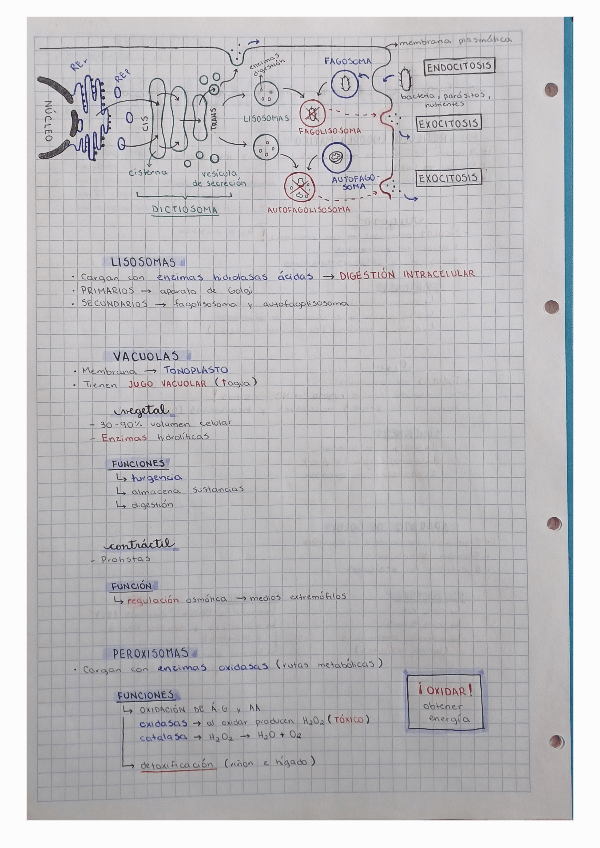 membrana plasmática
ENDOCITOSIS
bacteria, parásitos,
nutrientes
EXOCITOSIS
EXOCITOSIS
NÚCLEO
CIS
TRANS
cisterna
vesícula
de secreción
DICTIOSOMA
enzimas
digestión
LISOSOMAS
FAGOSOMA
FAGOLISOSOMA
AUTOFAGO-
SOMA
AUTOFAGOLISOSOMA
LISOSOMAS
· Cargan con enzimas hidrolasas ácidas → DIGESTIÓN INTRACELULAR
· PRIMARIOS → aparato de Golgi
· SECUNDARIOS → fagolisosoma y autofagolisosoma
VACUOLAS
· Membrana → TONOPLASTO
· Tienen JUGO VACUOLAR (↑agua)
vegetal
- 30-90% volumen celular
- Enzimas hidrolíticas
FUNCIONES
↳ turgencia
↳ almacena sustancias
↳ digestión
contráctil
- Protistas
FUNCIÓN
↳ regulación osmótica → medios extremófilos
PEROXISOMAS
· Cargan con enzimas oxidasas (rutas metabólicas)
FUNCIONES
↳ OXIDACIÓN DE Á.G y AA
oxidasas → al oxidar producen H₂O₂ (TÓXICO)
catalasa → H₂O₂ → H₂O + O₂
↳ detoxificación (riñón e hígado)
¡OXIDAR!
obtener
energía